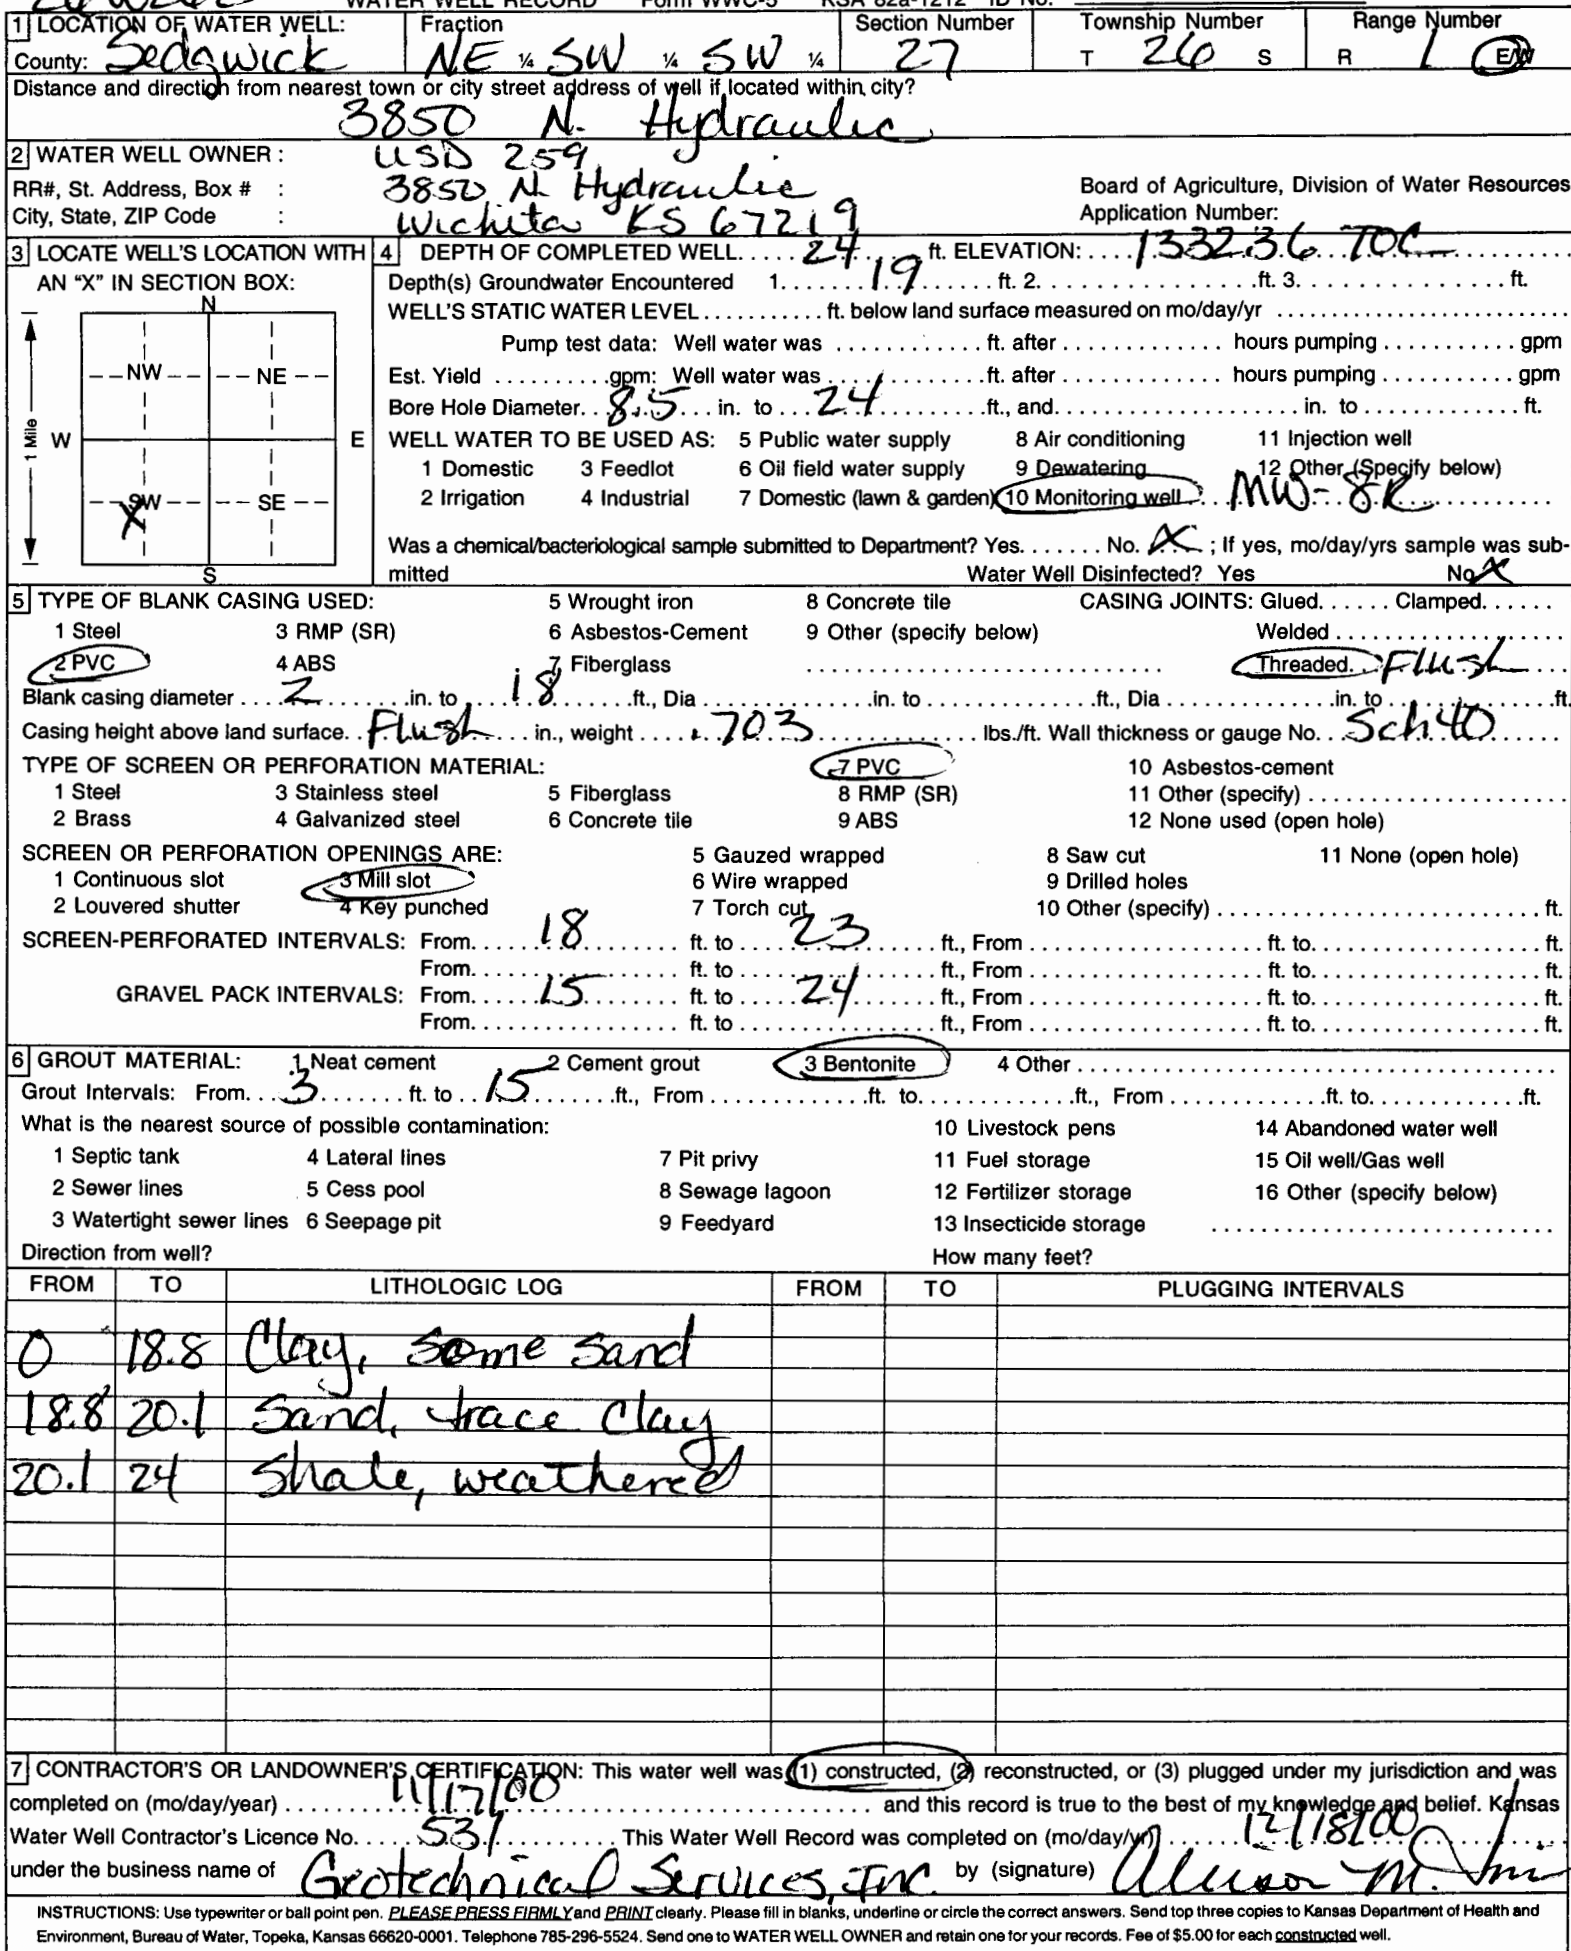 WATER WELL RECORD Form WWC-5 KSA 82a-1212 ID No.
1 LOCATION OF WATER WELL: Fraction Section Number Township Number Range Number
County: Sedgwick NE ¼ SW ¼ SW ¼ 27 T 26 S R 1 E/W
Distance and direction from nearest town or city street address of well if located within city?
3850 N. Hydraulic
2 WATER WELL OWNER : USD 259
RR#, St. Address, Box # : 3850 N. Hydraulic Board of Agriculture, Division of Water Resources
City, State, ZIP Code : Wichita KS 67219 Application Number:
3 LOCATE WELL'S LOCATION WITH AN "X" IN SECTION BOX:
N
NW NE
1 Mile W E
SW SE
X
S
4 DEPTH OF COMPLETED WELL. 24 ft. ELEVATION: 1332.36 TOC
Depth(s) Groundwater Encountered 1. 19 ft. 2. ft. 3. ft.
WELL'S STATIC WATER LEVEL ft. below land surface measured on mo/day/yr
Pump test data: Well water was ft. after hours pumping gpm
Est. Yield gpm: Well water was ft. after hours pumping gpm
Bore Hole Diameter. 8.5 in. to 24 ft., and in. to ft.
WELL WATER TO BE USED AS: 5 Public water supply 8 Air conditioning 11 Injection well
1 Domestic 3 Feedlot 6 Oil field water supply 9 Dewatering 12 Other (Specify below)
2 Irrigation 4 Industrial 7 Domestic (lawn & garden) 10 Monitoring well MW-8R
Was a chemical/bacteriological sample submitted to Department? Yes No. X ; If yes, mo/day/yrs sample was sub-
mitted Water Well Disinfected? Yes No X
5 TYPE OF BLANK CASING USED: 5 Wrought iron 8 Concrete tile CASING JOINTS: Glued Clamped
1 Steel 3 RMP (SR) 6 Asbestos-Cement 9 Other (specify below) Welded
2 PVC 4 ABS 7 Fiberglass Threaded. Flush
Blank casing diameter 2 in. to 18 ft., Dia in. to ft., Dia in. to ft.
Casing height above land surface. Flush in., weight .703 lbs./ft. Wall thickness or gauge No. Sch 40
TYPE OF SCREEN OR PERFORATION MATERIAL: 7 PVC 10 Asbestos-cement
1 Steel 3 Stainless steel 5 Fiberglass 8 RMP (SR) 11 Other (specify)
2 Brass 4 Galvanized steel 6 Concrete tile 9 ABS 12 None used (open hole)
SCREEN OR PERFORATION OPENINGS ARE: 5 Gauzed wrapped 8 Saw cut 11 None (open hole)
1 Continuous slot 3 Mill slot 6 Wire wrapped 9 Drilled holes
2 Louvered shutter 4 Key punched 7 Torch cut 10 Other (specify) ft.
SCREEN-PERFORATED INTERVALS: From 18 ft. to 23 ft., From ft. to ft.
From ft. to ft., From ft. to ft.
GRAVEL PACK INTERVALS: From 15 ft. to 24 ft., From ft. to ft.
From ft. to ft., From ft. to ft.
6 GROUT MATERIAL: 1 Neat cement 2 Cement grout 3 Bentonite 4 Other
Grout Intervals: From 3 ft. to 15 ft., From ft. to ft., From ft. to ft.
What is the nearest source of possible contamination: 10 Livestock pens 14 Abandoned water well
1 Septic tank 4 Lateral lines 7 Pit privy 11 Fuel storage 15 Oil well/Gas well
2 Sewer lines 5 Cess pool 8 Sewage lagoon 12 Fertilizer storage 16 Other (specify below)
3 Watertight sewer lines 6 Seepage pit 9 Feedyard 13 Insecticide storage
Direction from well? How many feet?
FROM TO LITHOLOGIC LOG FROM TO PLUGGING INTERVALS
0 18.8 Clay, some sand
18.8 20.1 Sand, trace clay
20.1 24 Shale, weathered
7 CONTRACTOR'S OR LANDOWNER'S CERTIFICATION: This water well was (1) constructed, (2) reconstructed, or (3) plugged under my jurisdiction and was
completed on (mo/day/year) 11/17/00 and this record is true to the best of my knowledge and belief. Kansas
Water Well Contractor's Licence No. 531 This Water Well Record was completed on (mo/day/yr) 12/18/00
under the business name of Geotechnical Services, Inc. by (signature)
INSTRUCTIONS: Use typewriter or ball point pen. PLEASE PRESS FIRMLY and PRINT clearly. Please fill in blanks, underline or circle the correct answers. Send top three copies to Kansas Department of Health and
Environment, Bureau of Water, Topeka, Kansas 66620-0001. Telephone 785-296-5524. Send one to WATER WELL OWNER and retain one for your records. Fee of $5.00 for each constructed well.